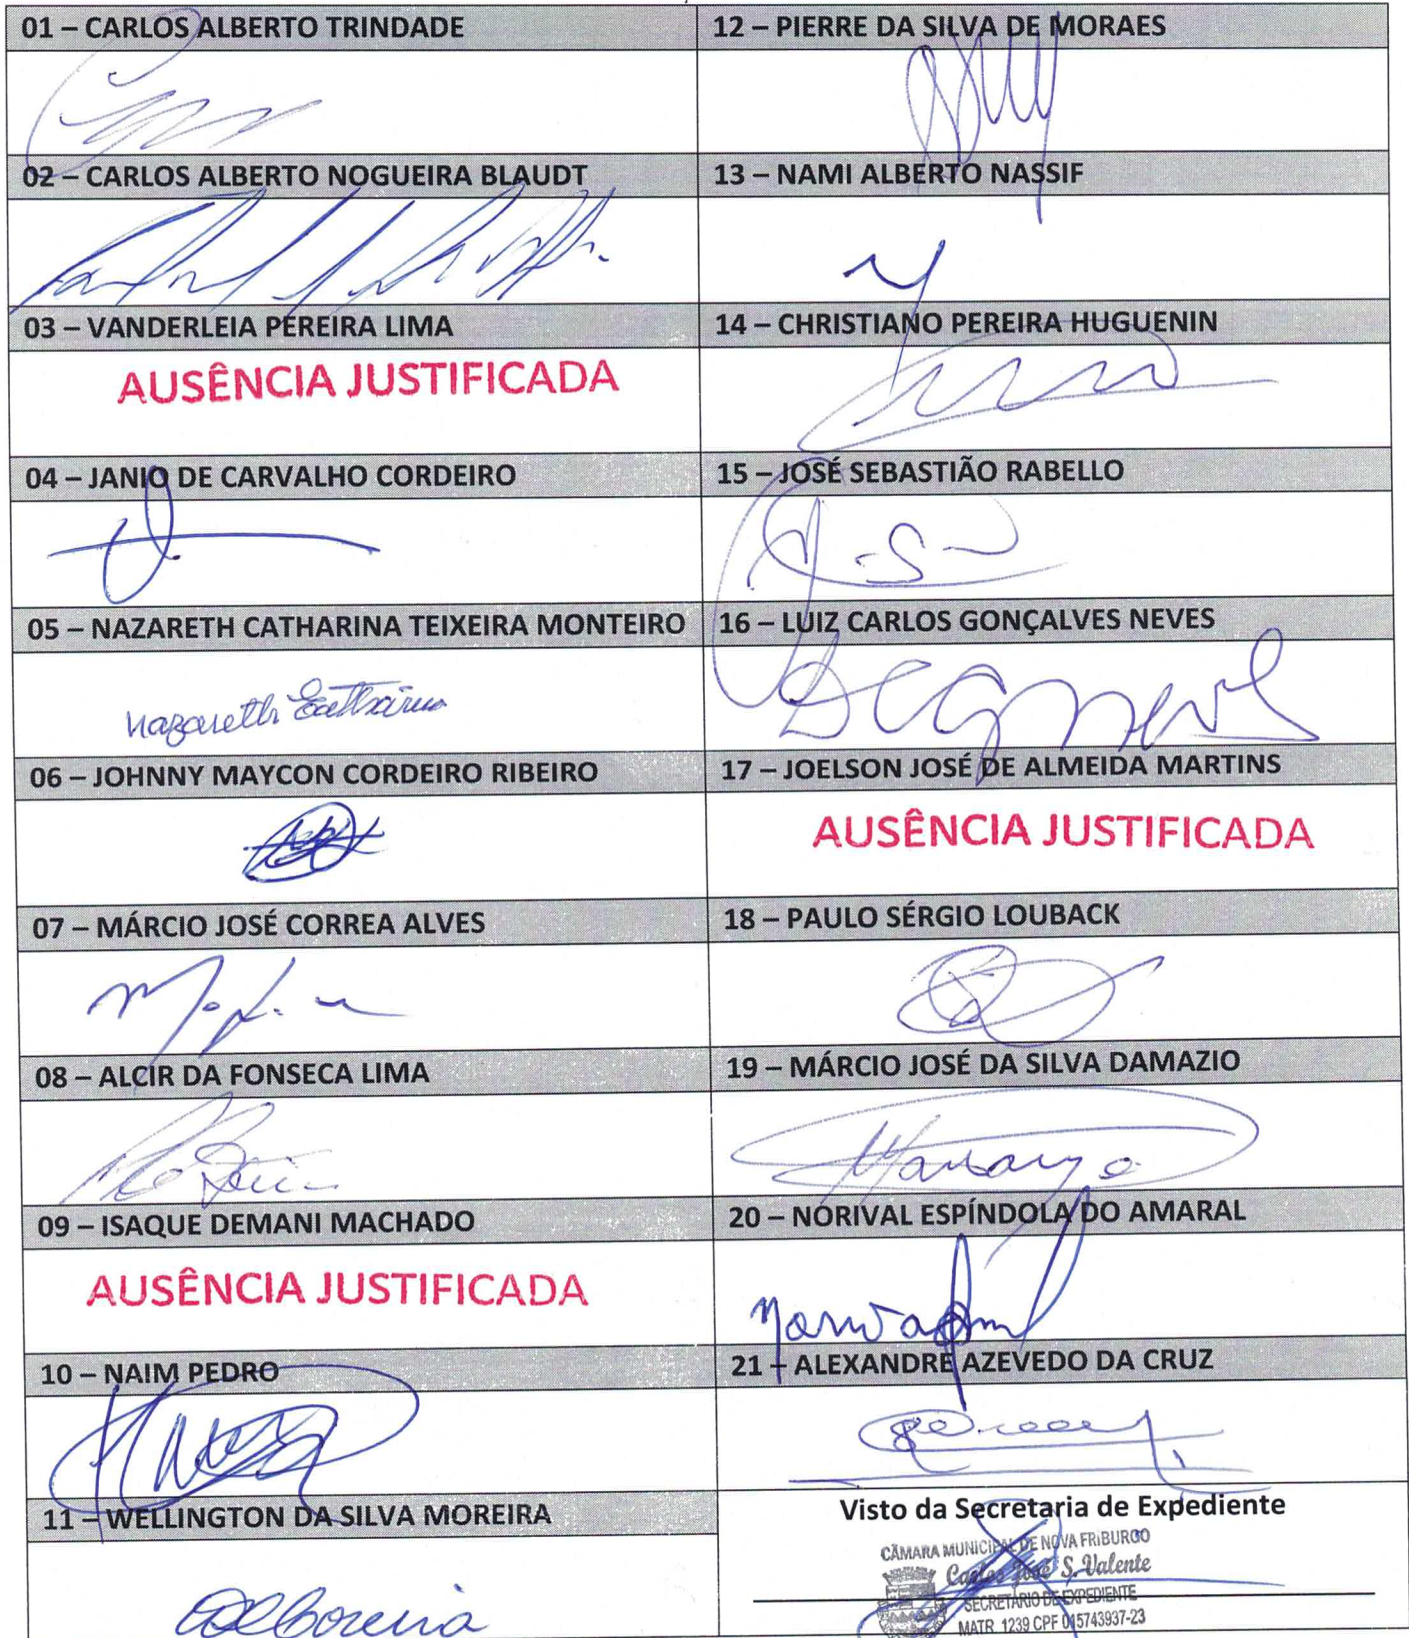 01 – CARLOS ALBERTO TRINDADE
02 – CARLOS ALBERTO NOGUEIRA BLAUDT
03 – VANDERLEIA PEREIRA LIMA
AUSÊNCIA JUSTIFICADA
04 – JANIO DE CARVALHO CORDEIRO
05 – NAZARETH CATHARINA TEIXEIRA MONTEIRO
Nazareth Catharina
06 – JOHNNY MAYCON CORDEIRO RIBEIRO
07 – MÁRCIO JOSÉ CORREA ALVES
08 – ALCIR DA FONSECA LIMA
09 – ISAQUE DEMANI MACHADO
AUSÊNCIA JUSTIFICADA
10 – NAIM PEDRO
11 – WELLINGTON DA SILVA MOREIRA
12 – PIERRE DA SILVA DE MORAES
13 – NAMI ALBERTO NASSIF
14 – CHRISTIANO PEREIRA HUGUENIN
15 – JOSÉ SEBASTIÃO RABELLO
16 – LUIZ CARLOS GONÇALVES NEVES
17 – JOELSON JOSÉ DE ALMEIDA MARTINS
AUSÊNCIA JUSTIFICADA
18 – PAULO SÉRGIO LOUBACK
19 – MÁRCIO JOSÉ DA SILVA DAMAZIO
20 – NORIVAL ESPÍNDOLA DO AMARAL
21 – ALEXANDRE AZEVEDO DA CRUZ
Visto da Secretaria de Expediente
CÂMARA MUNICIPAL DE NOVA FRIBURGO
Carlos José S. Valente
SECRETÁRIO DE EXPEDIENTE
MATR. 1239 CPF 015743937-23